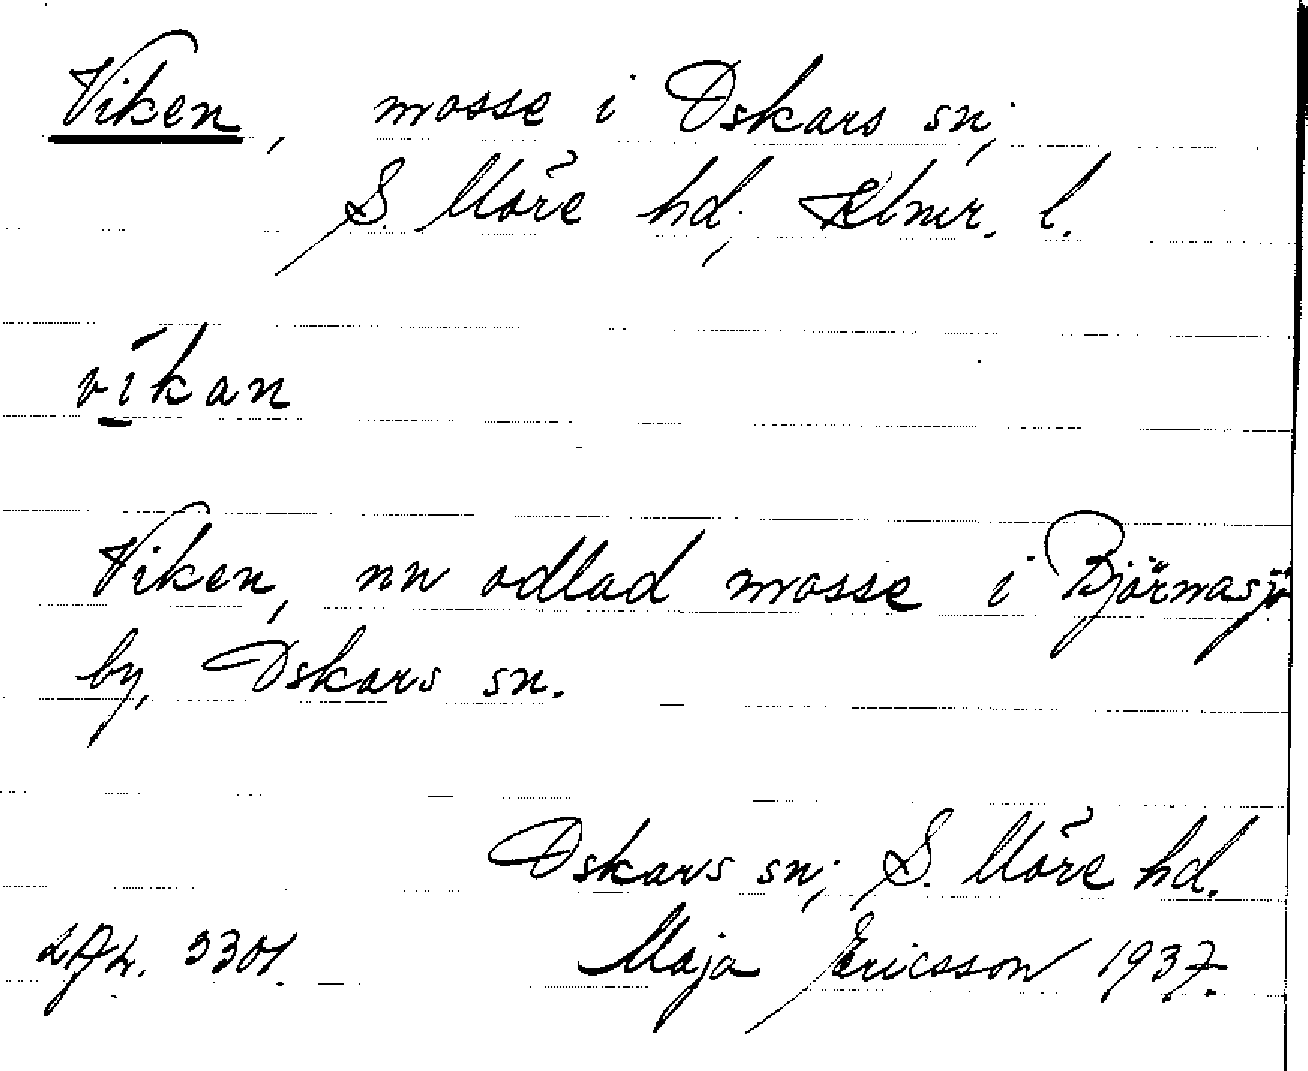 Viken, mosse i Oskars sn;
S. Möre hd; Klmr. l.
ví̱kan
Viken, nu odlad mosse i Björnasjö
by, Oskars sn.
Oskars sn; S. Möre hd.
3301. Maja Ericsson 1937.